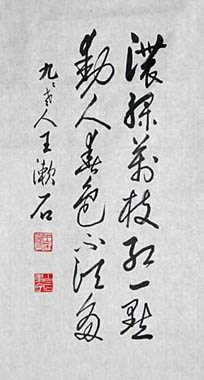 濃綠萬枝紅一點
動人春色不須多
九十老人王漱石